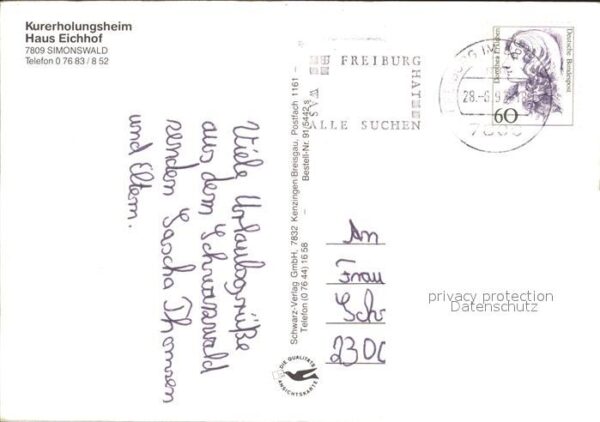 Kurerholungsheim
Haus Eichhof
7809 SIMONSWALD
Telefon 0 76 83 / 8 52
Viele Urlaubsgrüße
aus dem Schwarzwald
senden Sascha Thomsen
und Eltern.
Schwarz-Verlag GmbH, 7832 Kenzingen-Breisgau, Postfach 1161 –
Telefon (0 76 44) 16 58 – Bestell-Nr. 91/5442 s
DIE QUALITÄTS
ANSICHTSKARTE
FREIBURG
HAT
WAS
ALLE SUCHEN
28.-6.9
Dorothea Erxleben
Deutsche Bundespost
60
An
Frau
Schr
230
privacy protection
Datenschutz